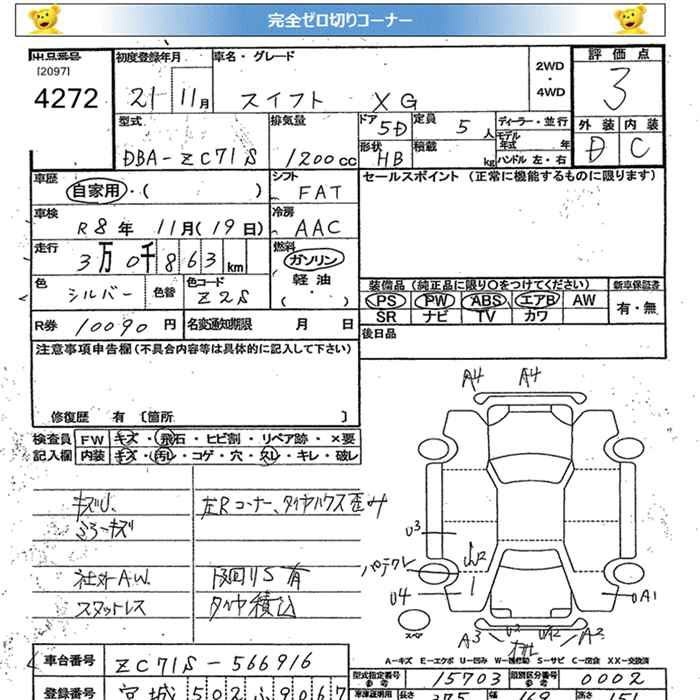 完全ゼロ切りコーナー
出品番号
[2097]
4272
初度登録年月
21 11月
車名・グレード
スイフト XG
2WD
・
4WD
評価点
3
型式
DBA-ZC71S
排気量
1200cc
ドア
5D
定員
5人
形状
HB
積載
kg
ディーラー・並行
モデル年式 年
ハンドル 左・右
外装 内装
D C
車歴
自家用・( )
シフト
FAT
セールスポイント (正常に機能するものに限ります)
車検
R8年 11月(19日)
冷房
AAC
走行
3万0千863km
燃料
ガソリン
軽油
・( )
色
シルバー
色替
色コード
Z2S
装備品(純正品に限り○をつけてください)
新車保証書
PS PW ABS エアB AW
SR ナビ TV カワ
有・無
R券 10090円
名変通知期限 月 日
後日品
注意事項申告欄(不具合内容等は具体的に記入して下さい)
修復歴 有 〔箇所 〕
検査員
記入欄
FW キズ・飛石・ヒビ割・リペア跡・×要
内装 キズ・汚レ・コゲ・穴・スレ・キレ・破レ
A4 A4
キズU
ミラーキズ
左Rコーナー、タイヤハウス歪み
U3
パテクレ
U4
UA1
社外AW
スタッドレス
下回りS有
タイヤ積込
スペア
A3 U2 A2
A-キズ E-エクボ U-凹み W-補修跡 S-サビ C-腐食 XX-交換済
車台番号
ZC71S-566916
型式指定番号
参考
15703
類別区分番号
参考
0002
登録番号
宮城502ふ9067
車庫証明用
参考
長さ
375
幅
169
高さ
151